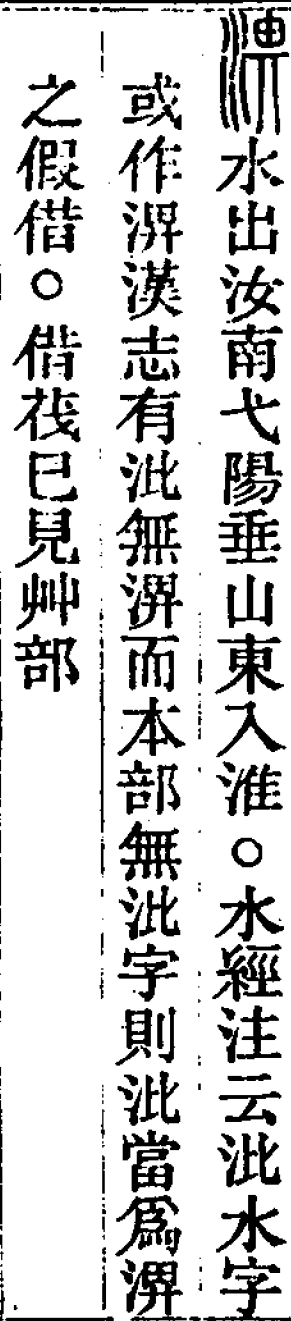 淠水出汝南弋陽垂山東入淮○水經注云沘水字
或作淠漢志有沘無淠而本部無沘字則沘當爲淠
之假借○借茷已見艸部